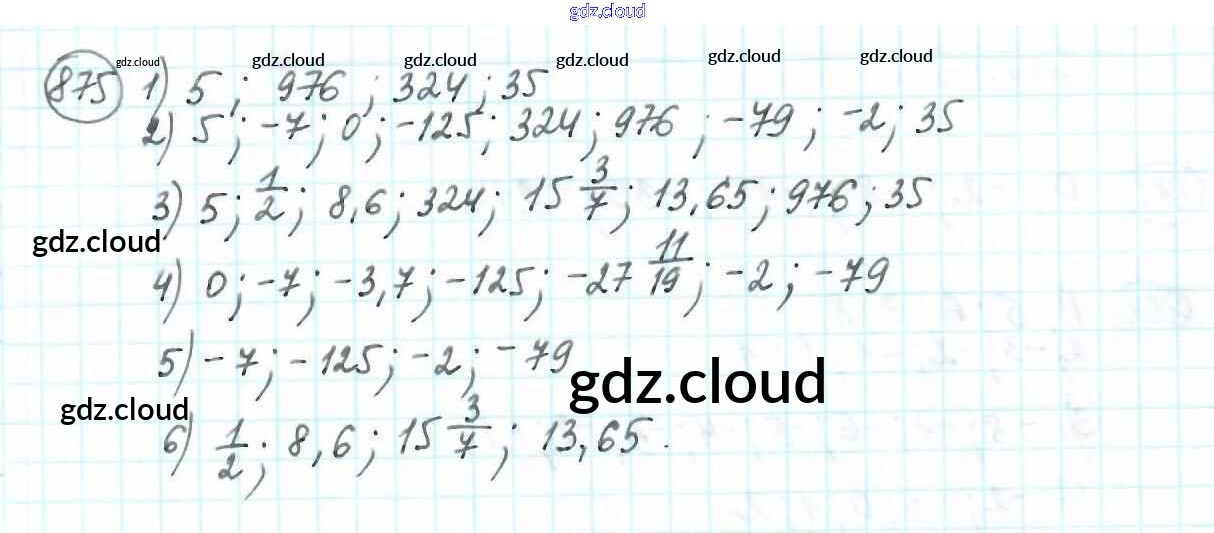 gdz.cloud
875 1) 5; 976; 324; 35
gdz.cloud gdz.cloud gdz.cloud gdz.cloud gdz.cloud gdz.cloud
2) 5; -7; 0; -125; 324; 976; -79; -2; 35
3) 5; 1/2; 8,6; 324; 15 3/7; 13,65; 976; 35
gdz.cloud
4) 0; -7; -3,7; -125; -27 11/19; -2; -79
5) -7; -125; -2; -79
gdz.cloud
gdz.cloud
6) 1/2; 8,6; 15 3/7; 13,65.